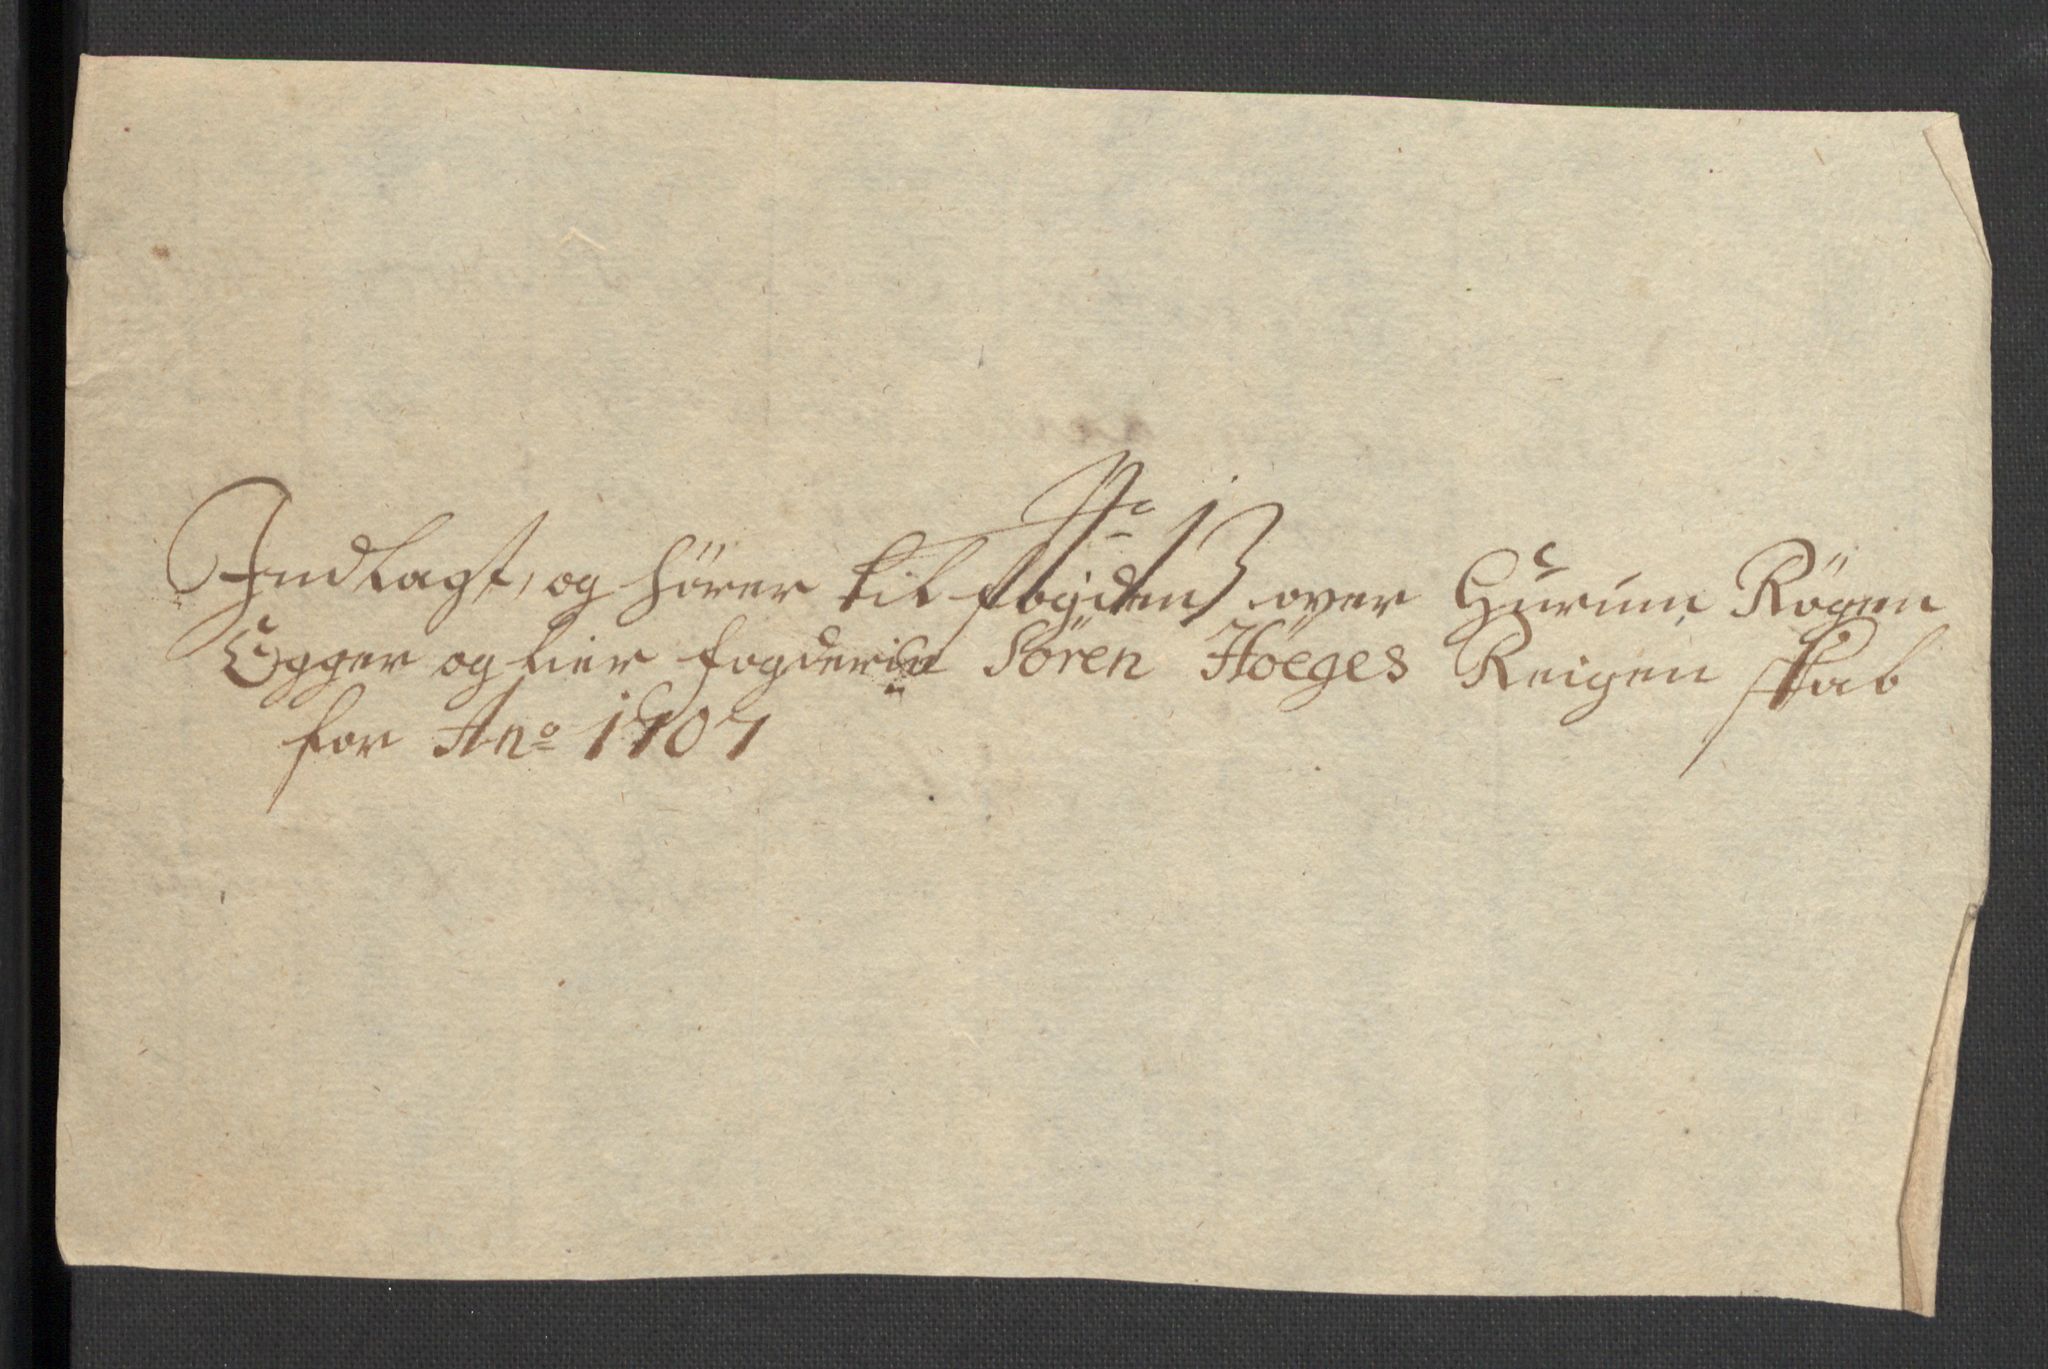 No 13
Indlagt, og hörer til fogdens over Hurum Rögen
Egger og Lier fogderie Sören Höeges Reigenskab
for Ano 1707